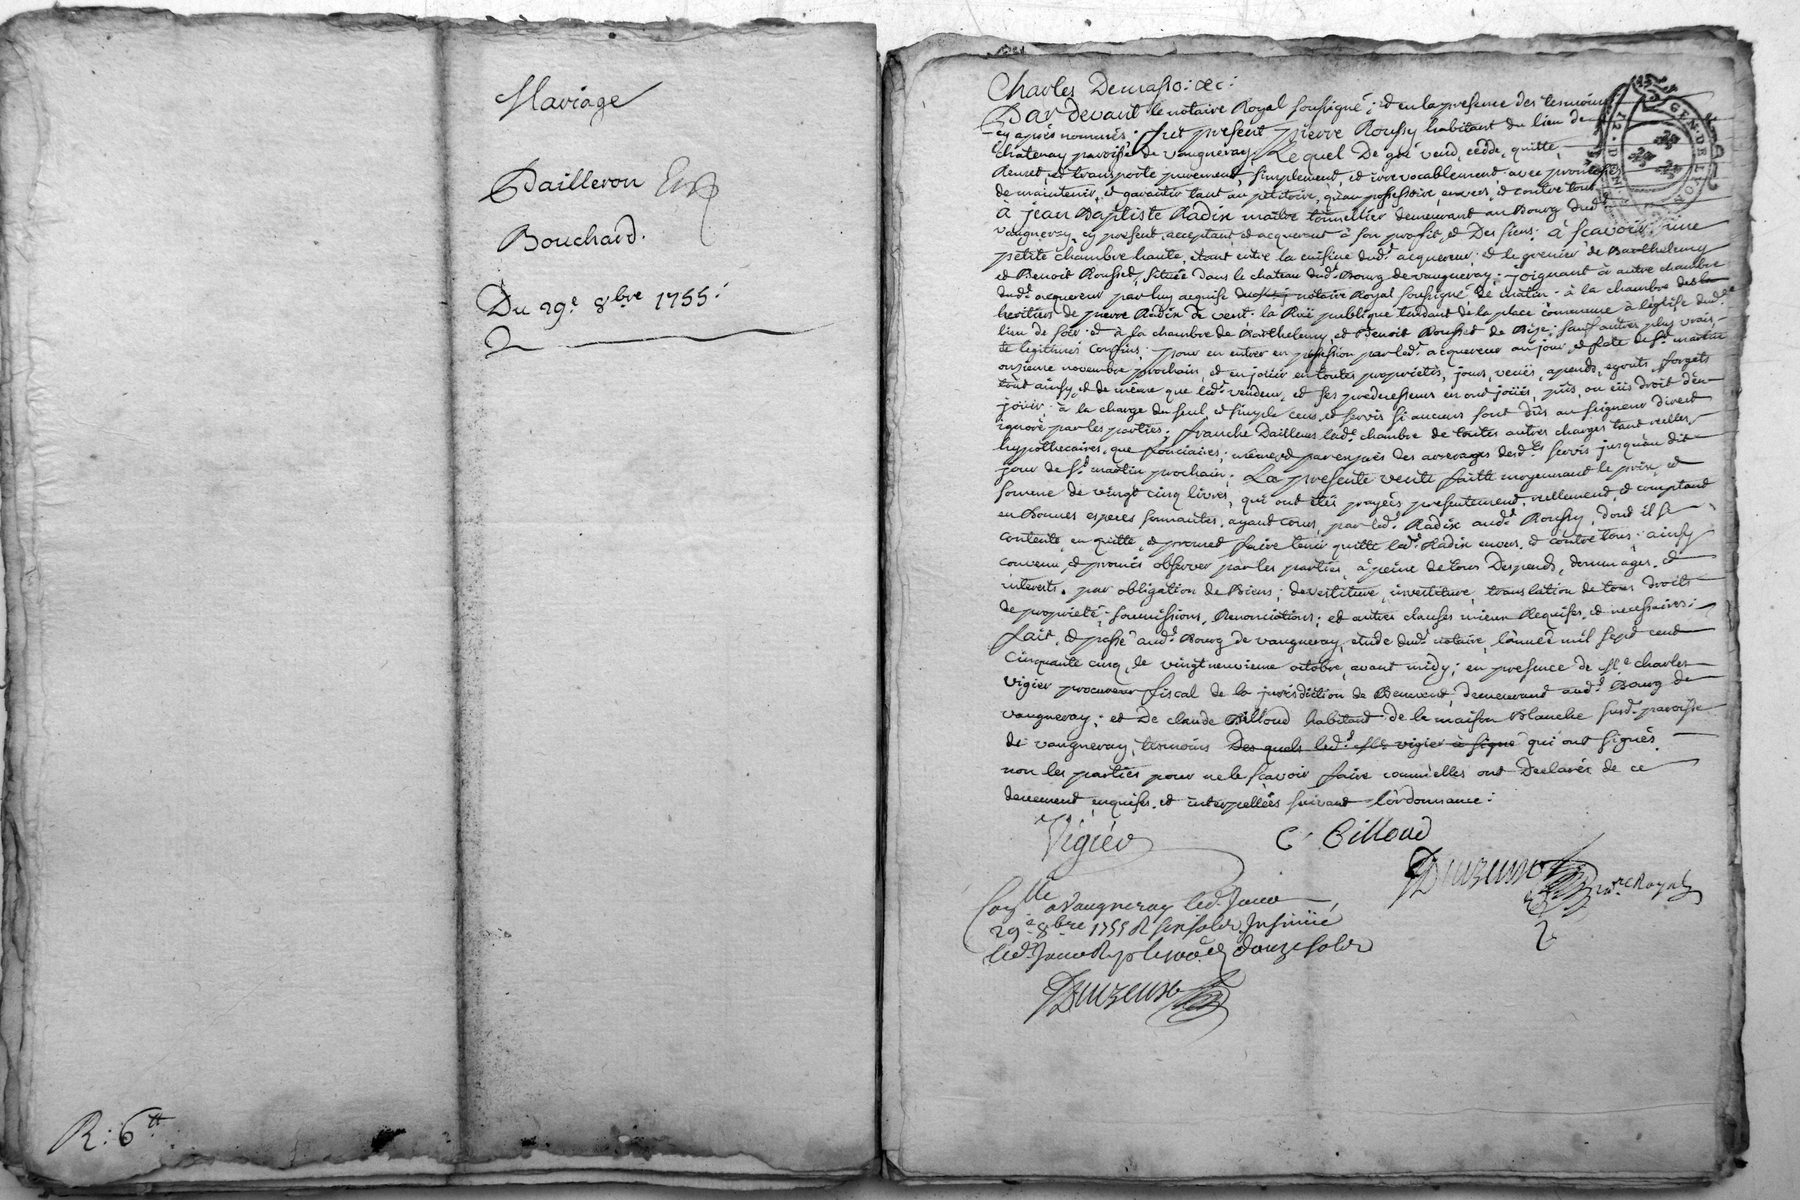 Mariage
Dailleron Et
Bouchard.
Du 29.e 8bre 1755:
R: 6tt
Charles Demasso: &c:
Pardevant le notaire Royal soussigné; et en la presence des temoins
cy après nommés: fut present pierre Roussy habitant du lieu de
Chatenay paroisse de vaugneray, Lequel De gré vend, cedde, quitte,
Remet, et transporte purement, simplement, et irrevocablement avec promesse
de maintenir, et garantir tant au petitoire, qu'au possessoire, envers, et contre tous
à jean Baptiste Radix maitre tonnellier demeurant au Bourg dud.t
vaugneray, cy present, acceptant, et acquerant à son profit, et Des siens: à scavoir une
petite chambre haute, étant entre la cuisine dud.t acquereur, et le grenier de Barthelemy
et Benoit Rousset, située dans le chateau dud.t Bourg de vaugneray; joignant à autre chambre
dud.t acquereur par luy acquise notaire Royal soussigné de matin: à la chambre des
heritiers de pierre Radix de vent: la Ruë publique tendant de la place commune à l'église dud.t
lieu de soir: et à la chambre de Barthelemy, et Benoit Rousset de Bize: sauf autres plus vrais,
et legitimes confins: pour en entrer en possession par led.t acquereur au jour, et fete de S.t martin
onzieme novembre prochain, et en joüir en toutes proprietés, jours, veües, apends, egouts, forgets
tout ainsy, et de même que led.t vendeur, et ses predecesseurs en ont joüis, pûs, ou eüs droit d'en
joüir: à la charge du seul, et simple cens, et servis si aucuns sont dûs au seigneur direct
ignoré par les parties; franche D'ailleurs lad.e chambre de toutes autres charges tant reelles,
hypothecaires, que fonciaires; même, et par exprès des arrerages desd.ts servis jusqu'au dit
jour de S.t martin prochain: La presente vente faitte moyennant le prix, et
somme de vingt cinq livres, qui ont étés payées presentement, reellement, et comptant
en Bonnes especes sonnantes, ayant cours, par led.t Radix aud.t Roussy, dont il se
contente, en quitte, et promet faire tenir quitte led.t Radix envers, et contre tous: ainsy
convenu, et promis observer par les parties, à peine de tous Despends, dommages, et
interests. par obligation de Biens; devestiture, investiture, translation de tous droits
de proprieté, soumissions, Renonciations; et autres clauses mieux Requises, et necessaires:
fait, et passé aud.t Bourg de vaugneray, etude dud.t notaire, l'année mil sept cent
Cinquante cinq, le vingt neuvieme octobre, avant midy; en presence de S.r charles
vigier procureur fiscal de la jurisdiction de Benevent, demeurant aud.t Bourg de
vaugneray; et De claude Billoud habitant de la maison Blanche susd.e paroisse
de vaugneray, temoins Des quels led.t S.r vigier a signé qui ont signés,
non les parties pour ne le scavoir faire comm'elles ont Declarés de ce
deuement enquises, et interpellées suivant l'ordonnance:
Vigier
C. Billoud
n.re Royal
Con.lle a Vaugneray led. Jour
29.e 8bre 1755 R six solds Insinué
douze solds